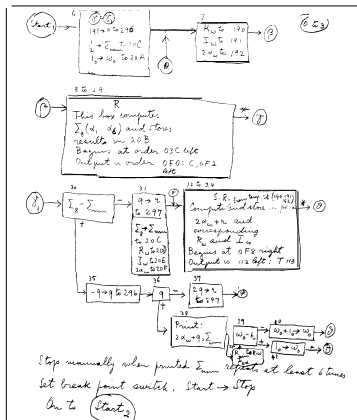 Start₁
6
191 → a to 296
½ → Σmin to 20C
1 → ω₀ to 20A
7
Rω to 190
Iω to 191
2αω to 192
β
θ
8 to 29
R
This box computes
Σβ(α, αβ) and stores
results in 20B
Begins at order 03C left
Output in order 0F0: C, 0F2
left
γ
γ₁
30
Σβ - Σmin
+
-
31
9 → r
to 297
Σβ → Σmin
to 20C
Rω to 20D
Iω to 20E
2αω to 20F
32 to 34
2αω + r and
corresponding
Rω and Iω
Begins at 0F8 right
Output is 112 left: T 113
35
-9 → 9 to 296
36
9
37
29 → r
to 297
38
Print:
2αω + 9, Σmin
39
1₀ → ω₀
Stop manually when printed Σmin repeats at least 6 times
Set break point switch. Start → Stop
On to Start₂